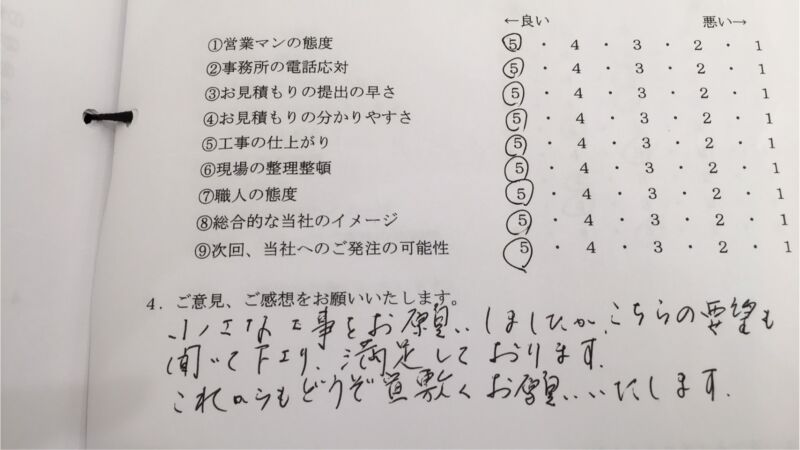 ←良い 悪い→
①営業マンの態度 5・4・3・2・1
②事務所の電話応対 5・4・3・2・1
③お見積もりの提出の早さ 5・4・3・2・1
④お見積もりの分かりやすさ 5・4・3・2・1
⑤工事の仕上がり 5・4・3・2・1
⑥現場の整理整頓 5・4・3・2・1
⑦職人の態度 5・4・3・2・1
⑧総合的な当社のイメージ 5・4・3・2・1
⑨次回、当社へのご発注の可能性 5・4・3・2・1
4．ご意見、ご感想をお願いいたします。
小さな工事をお願いしましたが、こちらの要望も
聞いて下さり、満足しております。
これからもどうぞ宜敷くお願いいたします。